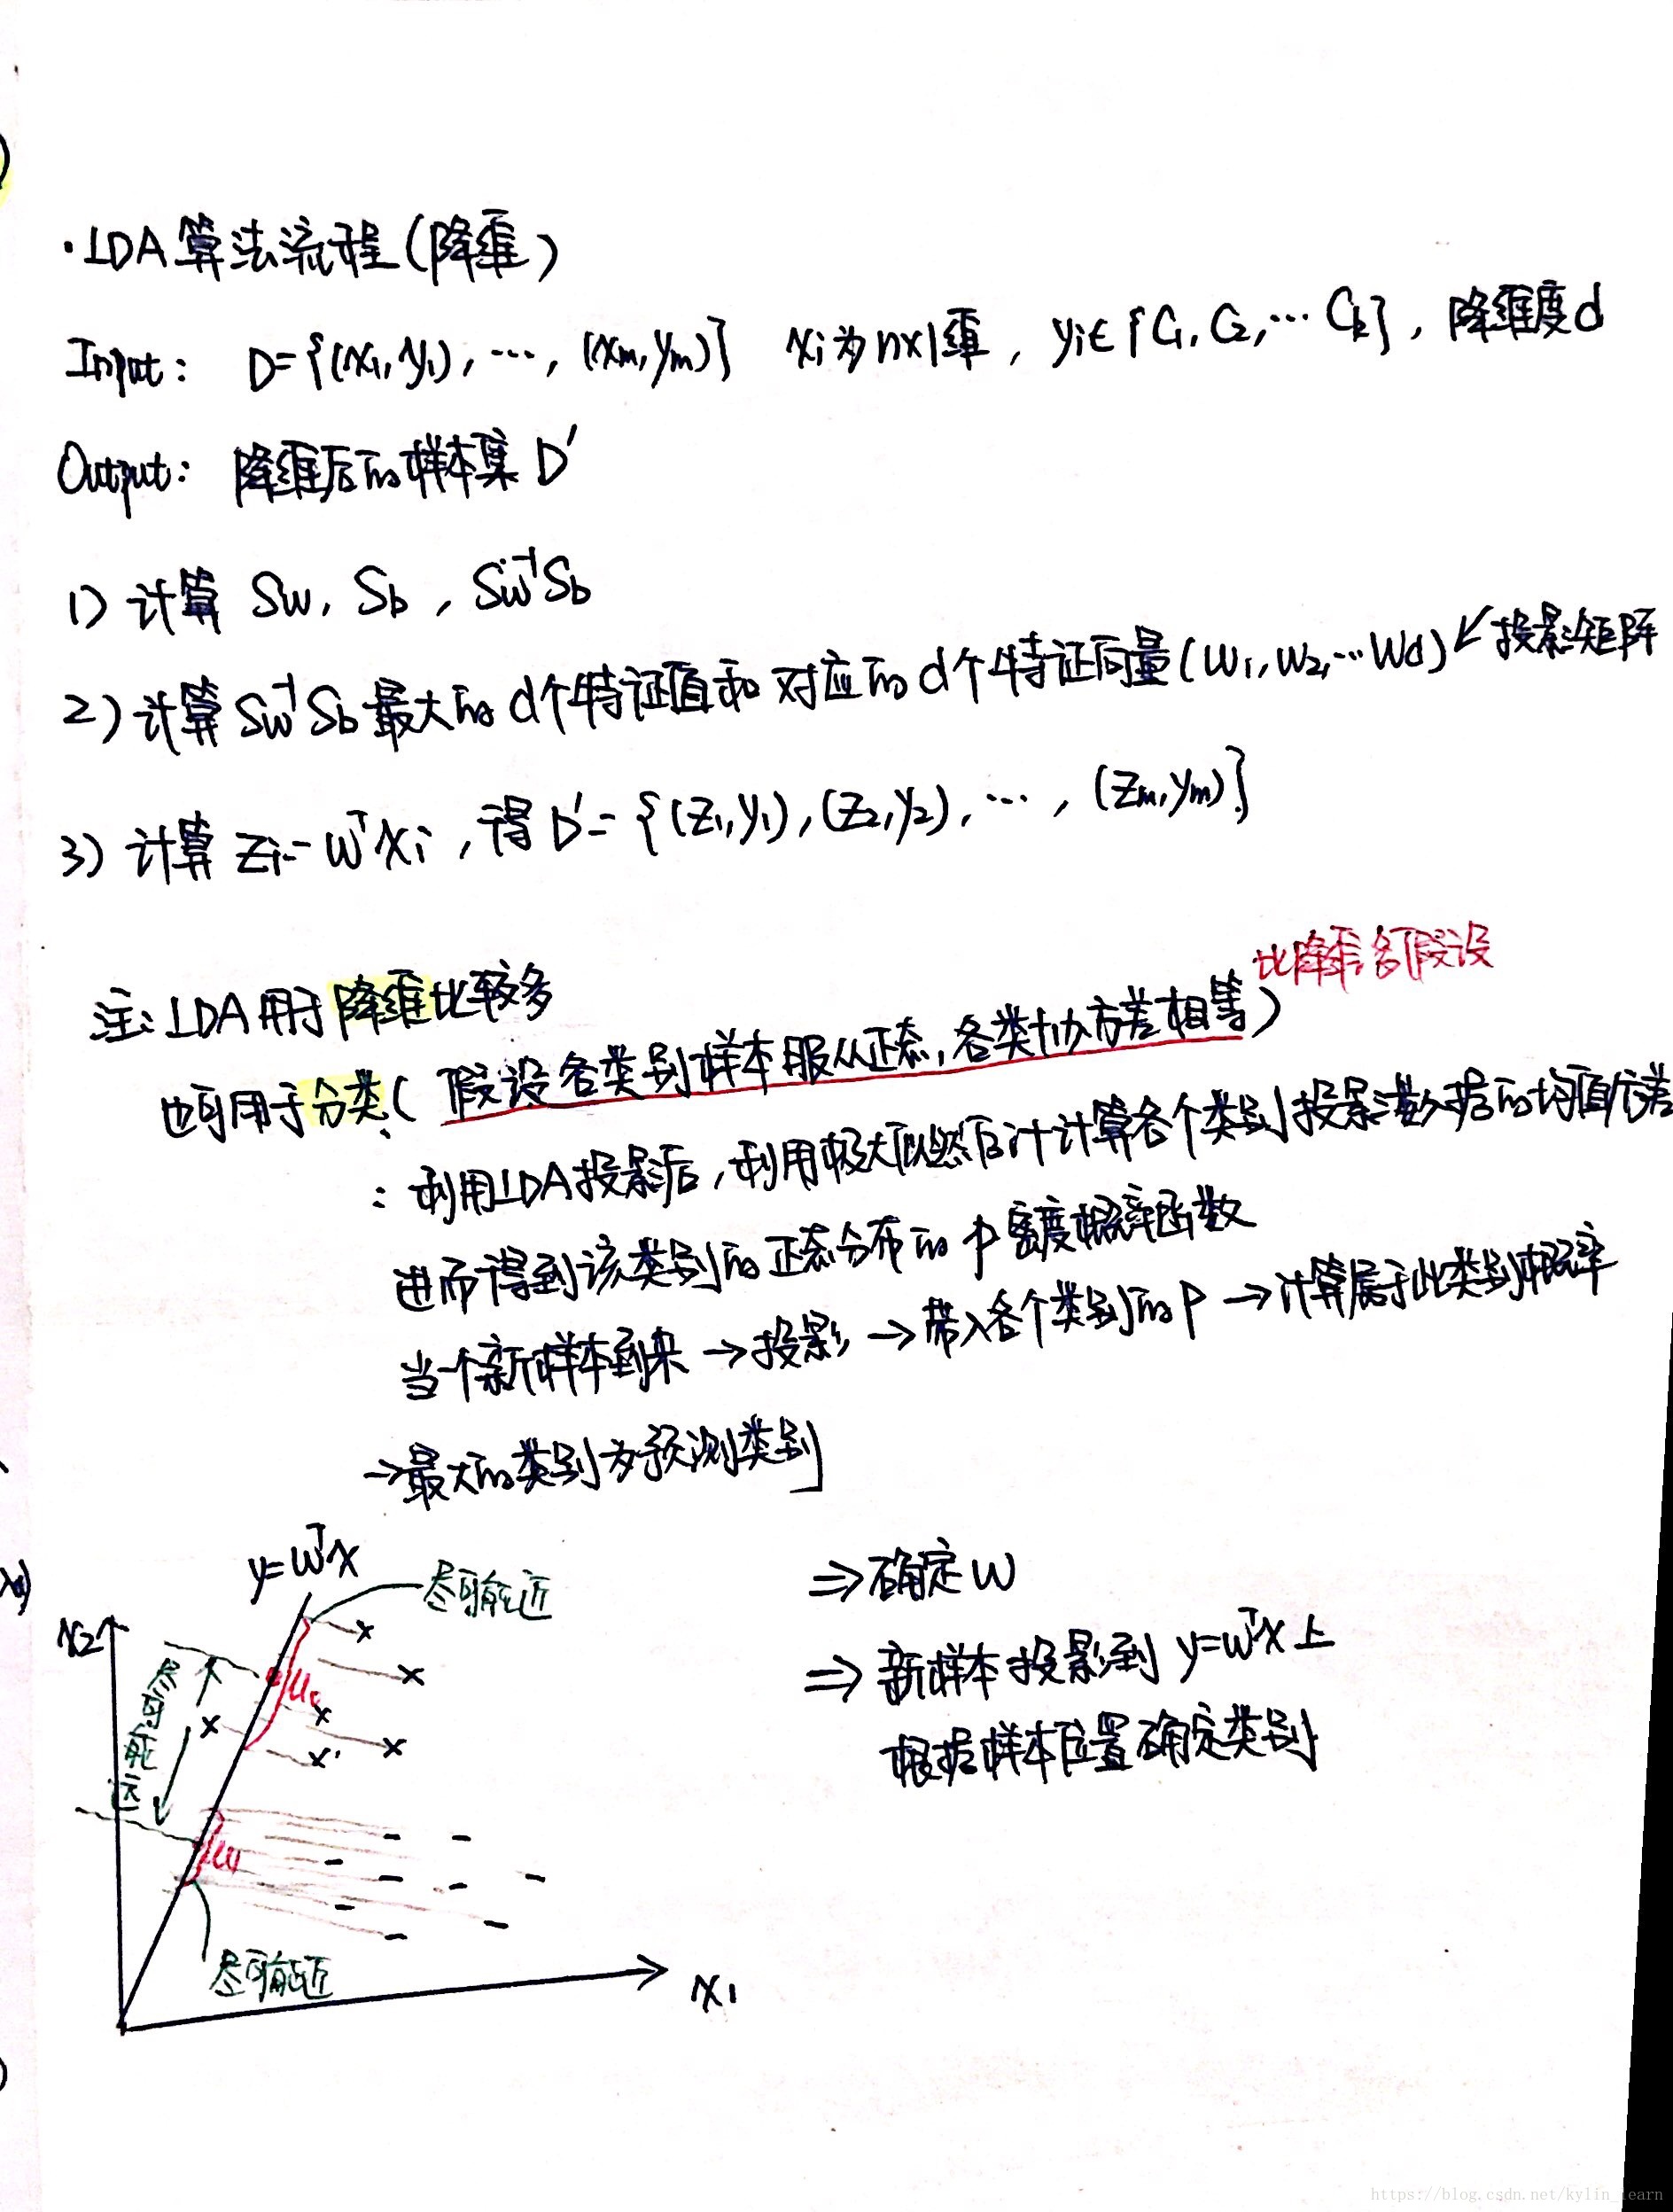 ·LDA算法流程(降维)
Input: D={(x₁,y₁),…,(xₘ,yₘ)} xᵢ为n×1维, yᵢ∈{C₁,C₂,…Cₖ},降维度d
Output: 降维后的样本集 D'
1) 计算 Sw, Sb, Sw⁻¹Sb
2) 计算Sw⁻¹Sb最大的d个特征值和对应的d个特征向量(w₁,w₂,…wd)↙投影矩阵
3) 计算 zᵢ=wᵀxᵢ,得D'={(z₁,y₁),(z₂,y₂),…,(zₘ,yₘ)}
比降维多个假设
注:LDA用于降维比较多
也可用于分类(假设各类别样本服从正态,各类协方差相等)
:利用LDA投影后,利用极大似然估计计算各个类别投影数据的均值方差
进而得到该类别的正态分布的p密度概率函数
当个新样本到来→投影→带入各个类别的p→计算属于此类别概率
→最大的类别为预测类别
y=wᵀx
尽可能近
x₂
尽可能远
μ₀
μ₁
尽可能近
x₁
⇒确定w
⇒新样本投影到 y=wᵀx上
根据样本位置确定类别
https://blog.csdn.net/kylin_learn